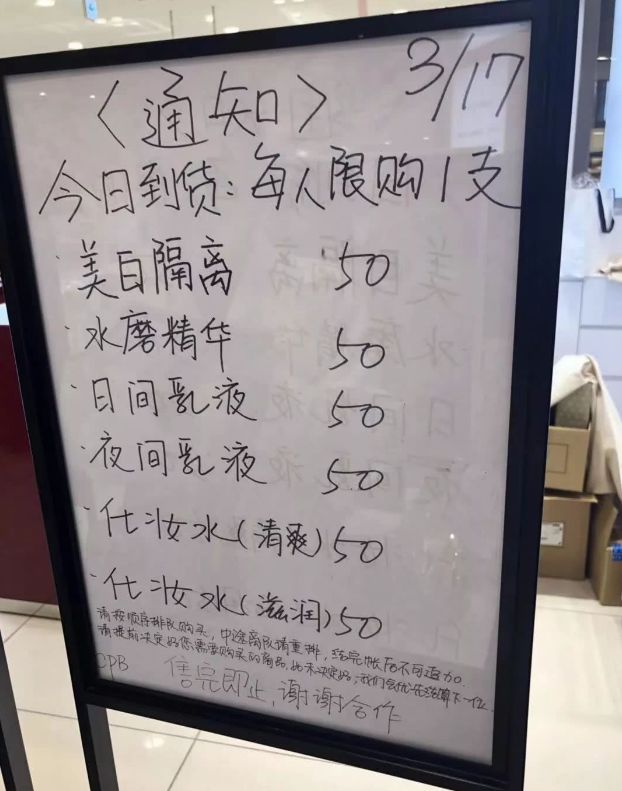 3/17
〈通知〉
今日到货：每人限购1支
·美白隔离 50
·水磨精华 50
·日间乳液 50
·夜间乳液 50
·化妆水(清爽) 50
·化妆水(滋润) 50
请按顺序排队购买，中途离队请重排，结完帐后不可追加
请提前决定好您需要购买的商品，如未决定好，我们会优先结算下一位.
CPB 售完即止，谢谢合作